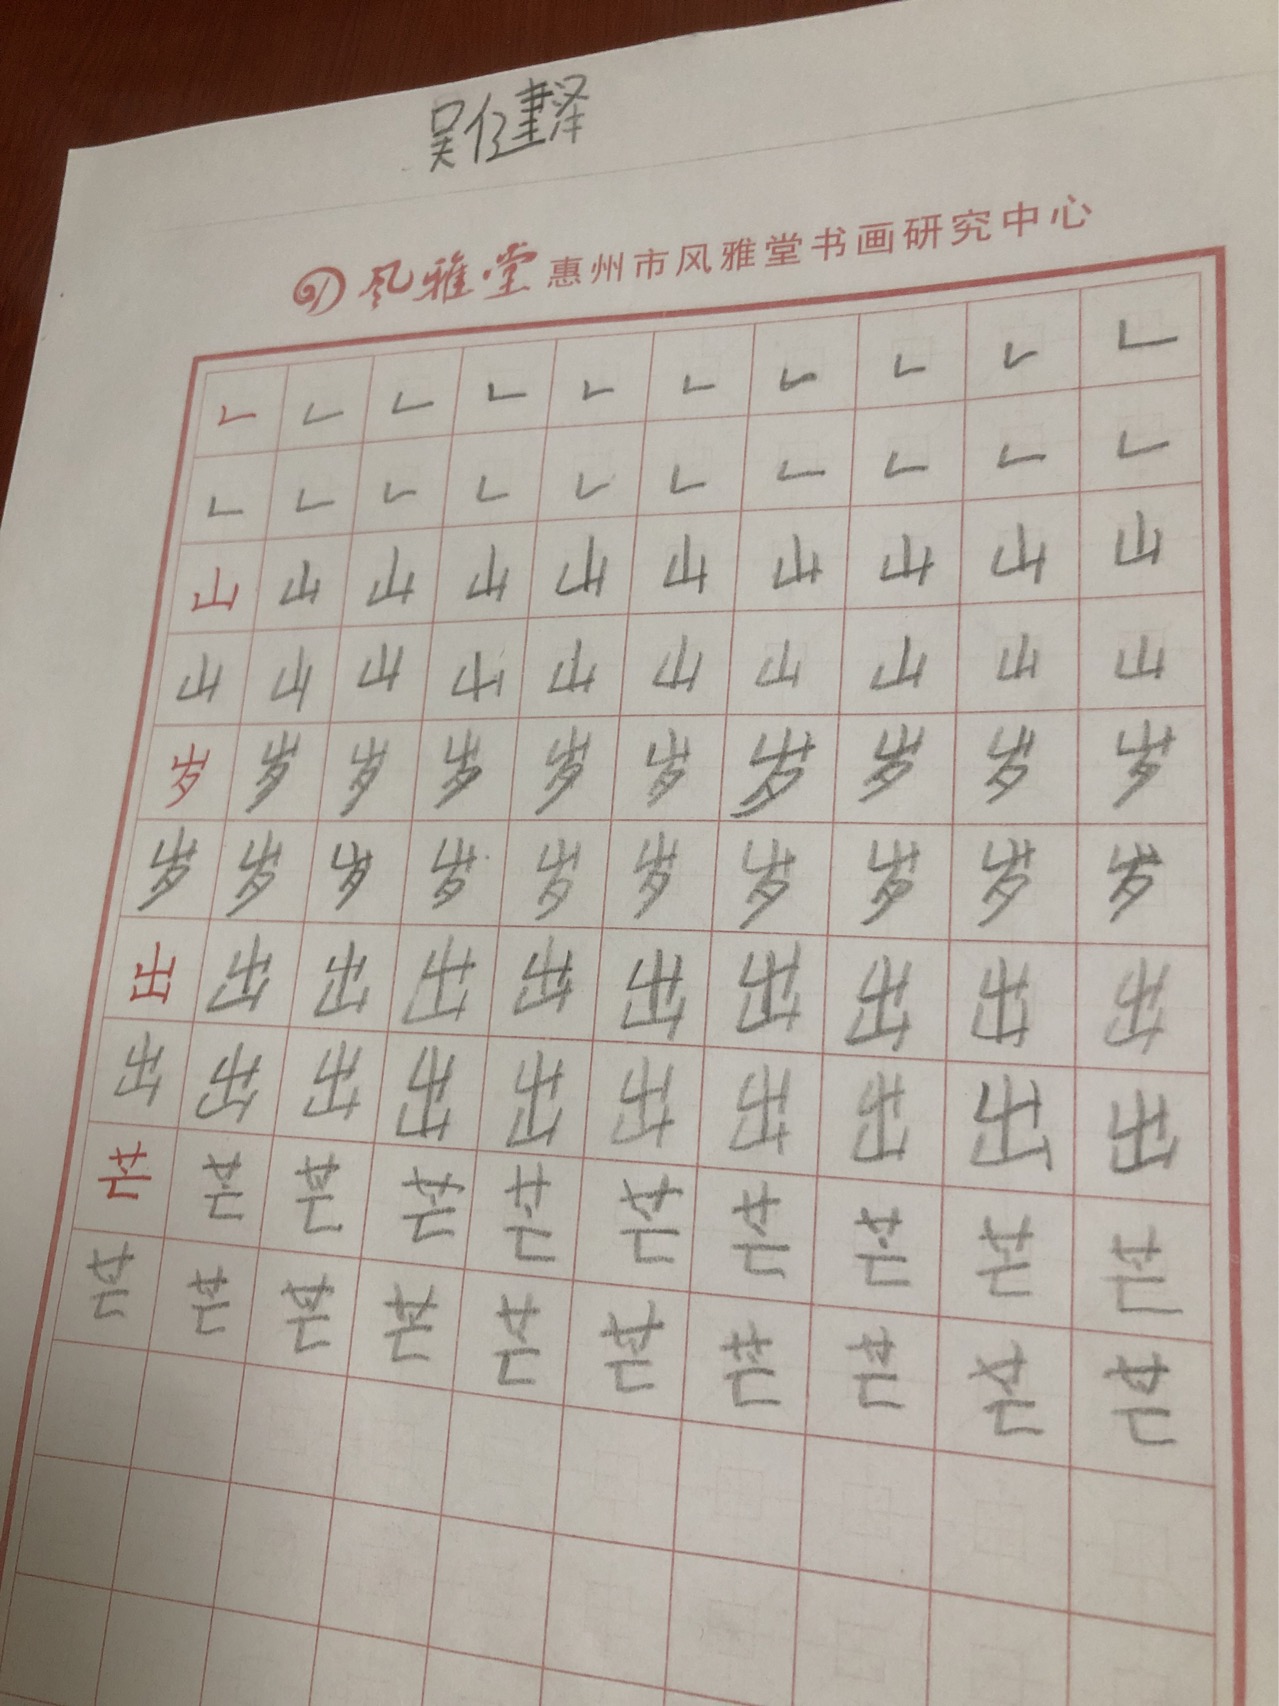 吴健泽
风雅堂 惠州市风雅堂书画研究中心
𠃊 𠃊 𠃊 𠃊 𠃊 𠃊 𠃊 𠃊 𠃊 𠃊
𠃊 𠃊 𠃊 𠃊 𠃊 𠃊 𠃊 𠃊 𠃊 𠃊
山 山 山 山 山 山 山 山 山 山
山 山 山 山 山 山 山 山 山 山
岁 岁 岁 岁 岁 岁 岁 岁 岁 岁
岁 岁 岁 岁 岁 岁 岁 岁 岁 岁
出 出 出 出 出 出 出 出 出 出
出 出 出 出 出 出 出 出 出 出
芒 芒 芒 芒 芒 芒 芒 芒 芒 芒
芒 芒 芒 芒 芒 芒 芒 芒 芒 芒